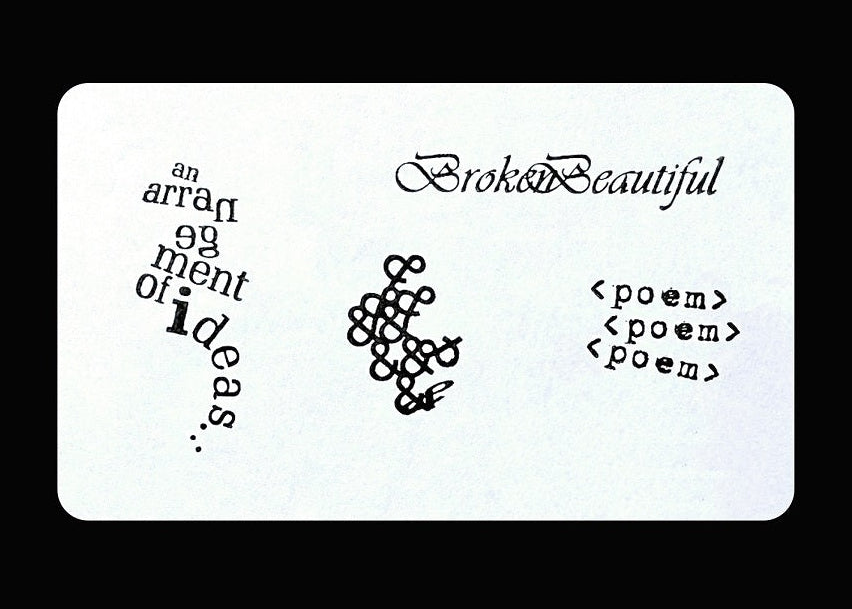 an
arran
ge
ment
of ideas...
BrokenBeautiful
&
& &
& & &
&
& & &
& &
<poem>
<poem>
<poem>